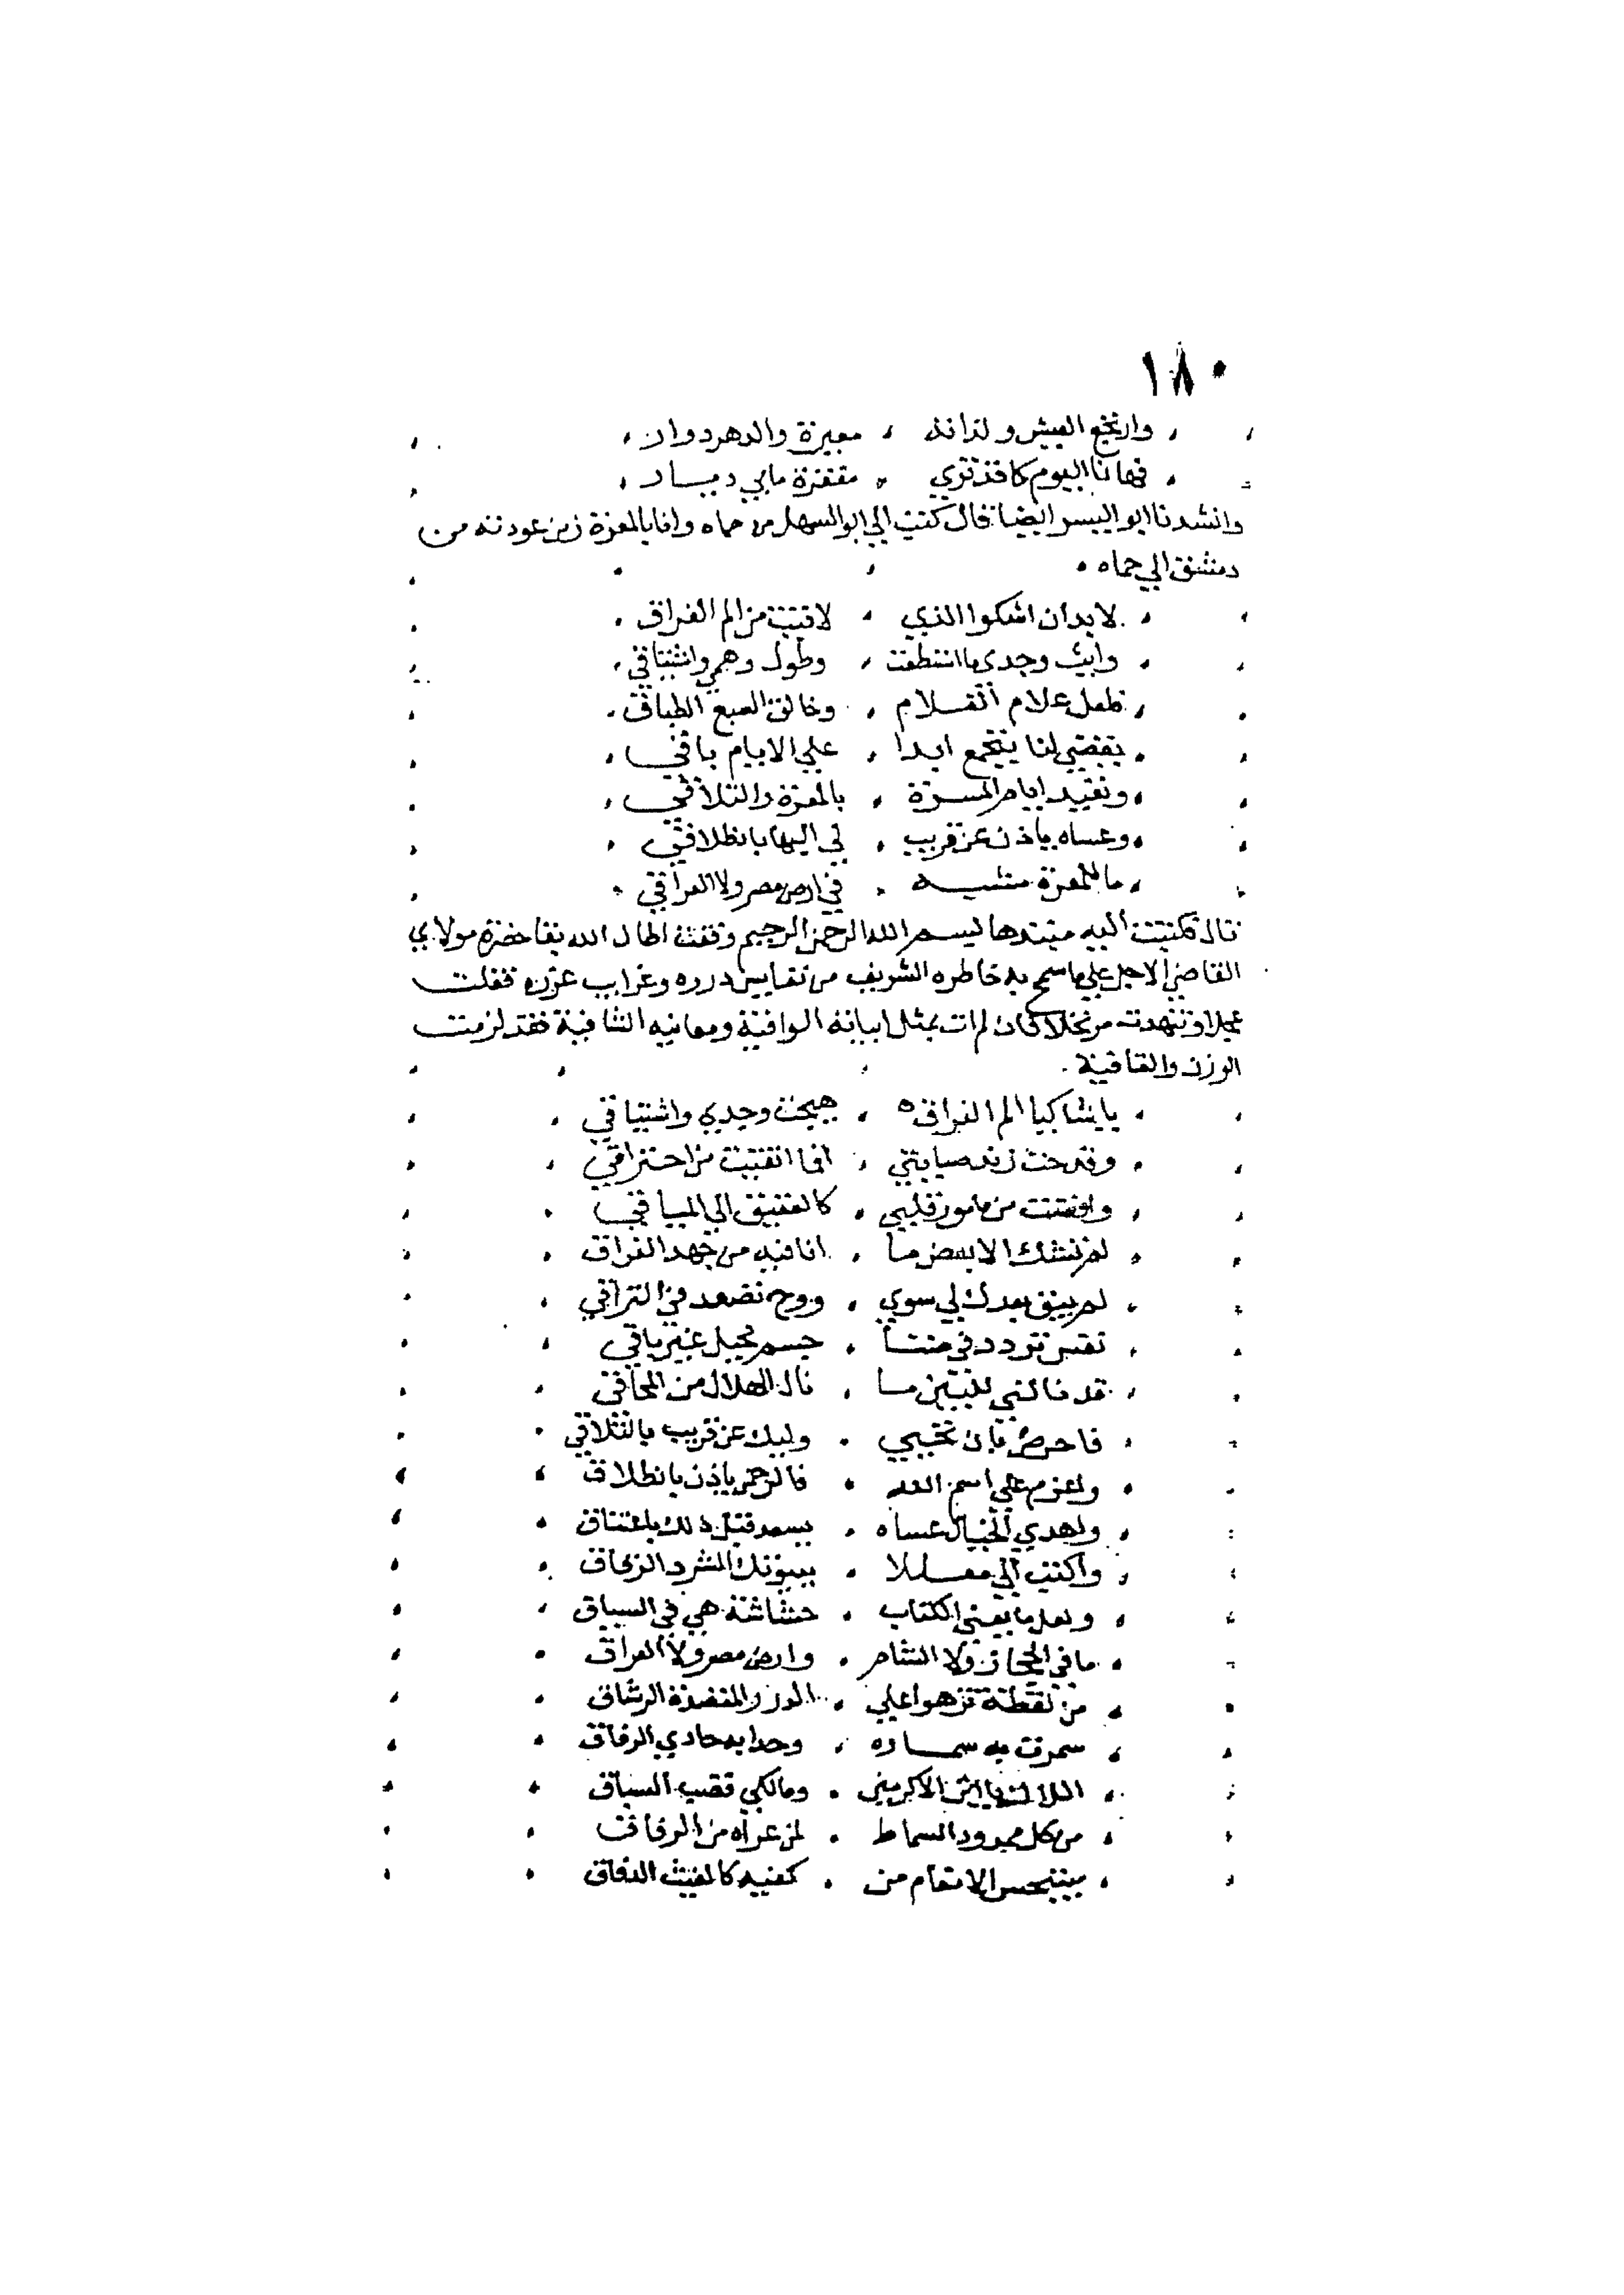 ١٨٠
وارتجع العيش ولذاته ، معيرة والدهر دوار
فها نا اليوم كما قد تري ، مقفرة مابي ديار
وانشدنا ابو اليسر ايضا قال كتب الي ابو السهل من حماه وانا بالمعرة زمن عودته من
دمشق الي حماه
لابد ان اشكوا الذي ، لاقيت من الم الفراق
وابث وجدي ما استطعت ، وطول وهمي واشتياقي
فلعل علام السلام ، وخالق السبع الطباق
يقضي لنا بتجمع ابدا ، علي الايام باقي
ونعيد ايام المسرة ، بالمعرة والتلاقي
وعساه ياذن عن قريب ، لي اليها بانطلاقي
ما للمعرة مشبه ، في ارض مصر ولا العراق
قال فكتبت اليه مبتدها بسم الله الرحمن الرحيم وقفت اطال الله بقا حضرة مولاي
القاضي الاجل علي ما سمح به خاطره الشريف من نفايس درره وغرايب غرره فقلت
عجلا وتنهدت مرتجلا فان لم ات بمثل ابياته الوافية ومعانيه الشافية فقد لزمت
الوزن والقافية
يا شاكيا الم الفراق ، هيجت وجدي واشتياقي
وقدحت زند صبابتي ، احتراقي
وافقت من قلبي ، الي المياقي
لم تشك الا بعض ما ، انا فيه من جهد الفراق
لم يبق بعدك لي سوي ، روح تصعد في التراقي
نفس تردد في حشا ، جسم نحيل غير باقي
قد نالني للبين ما ، نال الهلال من المحاق
فاحرص بان تحيي ، وليك عن قريب بالتلاقي
واعزم علي اسم الله ، فالرحمن ياذن بانطلاق
واهدي الخيال عساه ، يسعد قبل ذلك باعتناق
واكتب الي معللا ، المشرد الزعاق
ولعل ما يعني الكتاب ، حشاشة هي في السياق
ما في الحجاز ولا الشام ، وارض مصر ولا العراق
من نقطة تزهوا علي ، الدرر المنضدة الرشاق
سمرت به سماره ، وحدا به حادي الرفاق
الاكرمين ، ومالكي قصب السباق
من كل ممدود السماط ، لمن عراه من الرفاق
ينبجس الانعام من ، كفيه كالغيث الدفاق